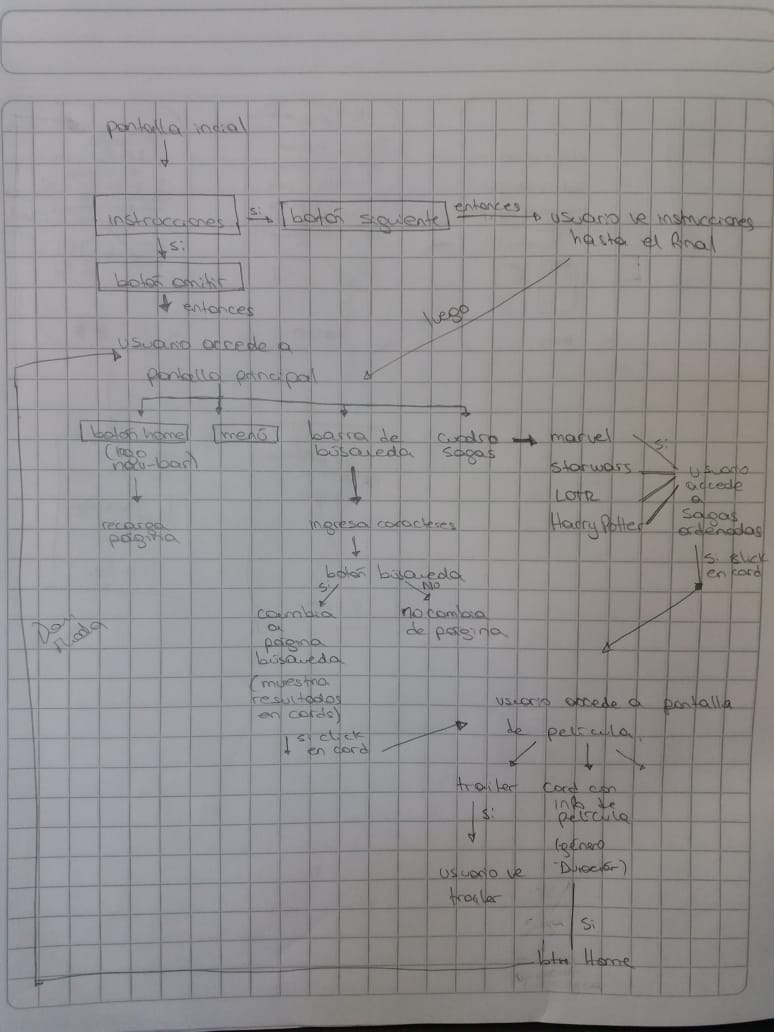 pantalla inicial
instrucciones
si
botón siguiente
entonces
usuario ve instrucciones
hasta el final
si
botón omitir
entonces
luego
usuario accede a
pantalla principal
botón home
(logo
nav-bar)
menú
barra de
búsqueda
cuadro
sagas
marvel
starwars
LOTR
Harry Potter
si
usuario
accede
a
sagas
ordenadas
recarga
página
ingresa caracteres
si click
en card
botón búsqueda
si
NO
cambia
a
página
búsqueda
(muestra
resultados
en cards)
no cambia
de página
si click
en card
usuario accede a pantalla
de película
trailer
si
usuario ve
trailer
card con
info de
película
(género
-Duración)
si
btn Home